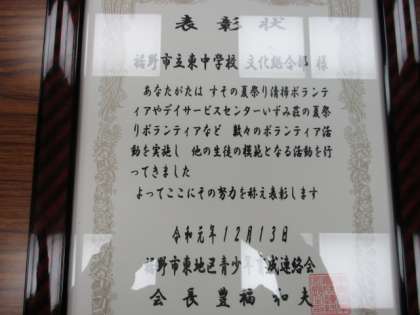 表彰状
裾野市立東中学校 文化総合部 様
あなたがたは すその夏祭り清掃ボランテ
ィアやデイサービスセンターいずみ荘の夏祭
りボランティアなど 数々のボランティア活
動を実施し 他の生徒の模範となる活動を行
ってきました
よってここにその努力を称え表彰します
令和元年12月13日
裾野市東地区青少年育成連絡会
会長 豊福 和夫